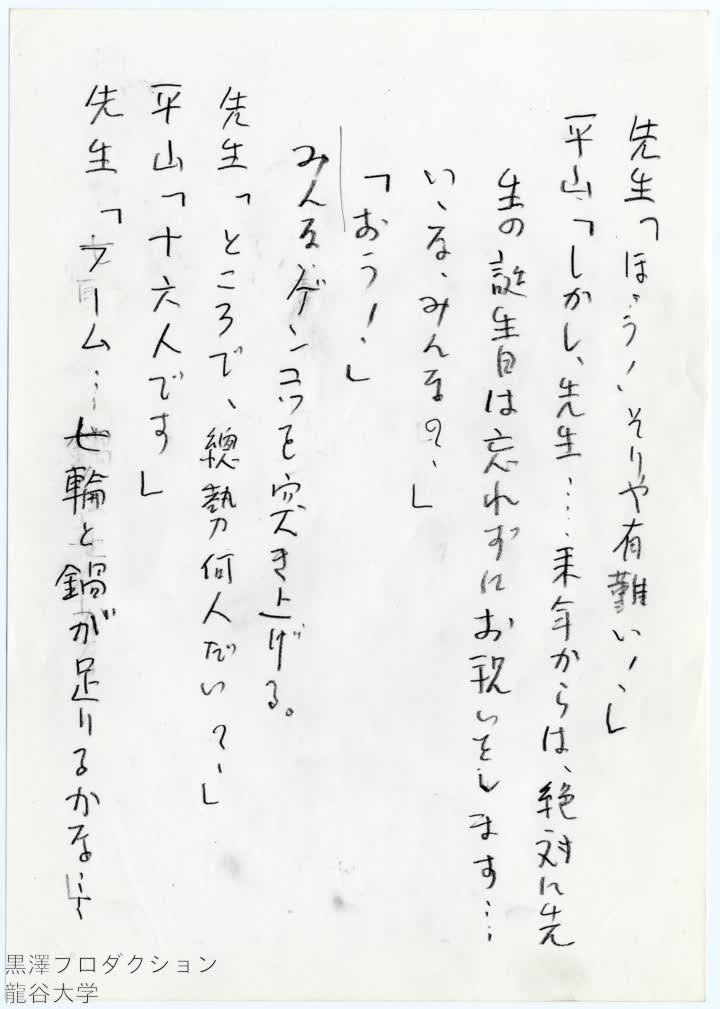 先生「ほゝう！、そりや有難い！、」
平山「しかし、先生…、来年からは、絶対に先
生の誕生日は忘れずにお祝いをします…
いゝな、みんな？、」
「おう！、」
みんな、ゲンコツを突き上げる。
先生「ところで、総勢何人だい？、」
平山「十六人です」
先生「フーム…七輪と鍋が足りるかな…」
黒澤プロダクション
龍谷大学